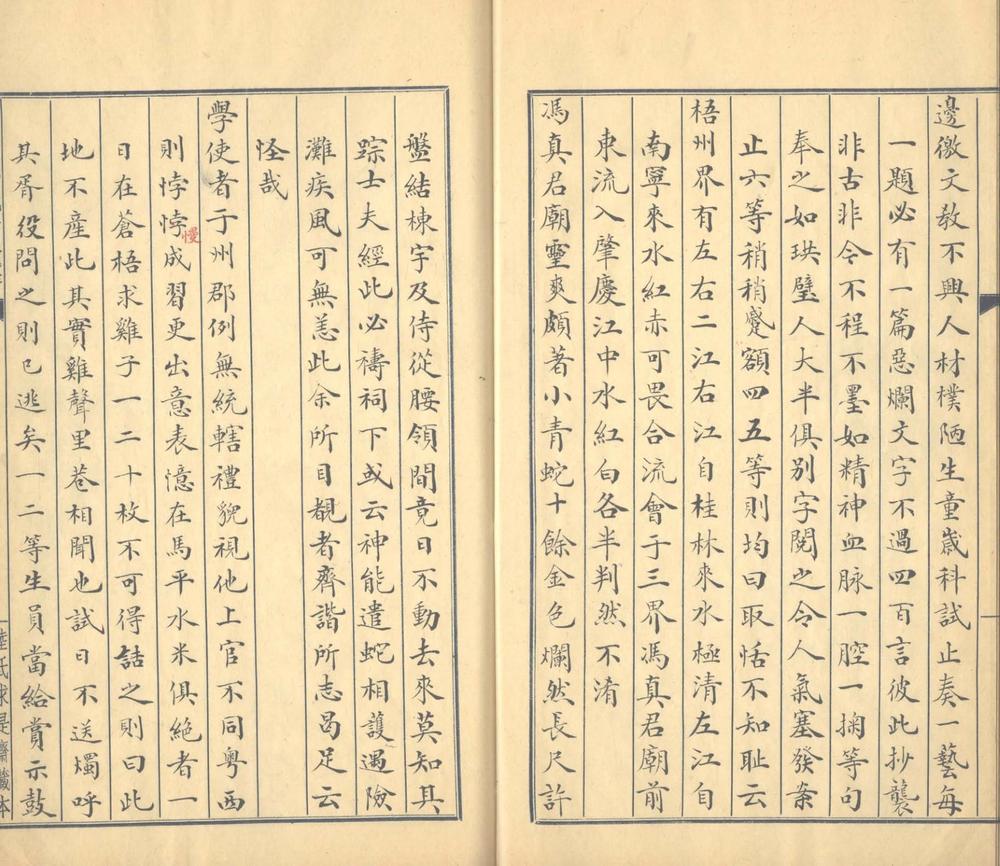 邊徼文敎不興人材樸陋生童歲科試止奏一藝每
一題必有一篇惡爛文字不過四百言彼此抄襲
非古非今不程不墨如精神血脉一腔一掬等句
奉之如珙璧人大半俱別字閱之令人氣塞發案
止六等稍稍蹙額四五等則均曰取恬不知耻云
梧州界有左右二江右江自桂林來水極清左江自
南寧來水紅赤可畏合流會于三界馮真君廟前
東流入肇慶江中水紅白各半判然不淆
馮真君廟靈爽頗著小青蛇十餘金色爛然長尺許
盤結棟宇及侍從腰領間竟日不動去來莫知其
踪士夫經此必禱祠下或云神能遣蛇相護遇險
灘疾風可無恙此余所目覩者齊諧所志曷足云
怪哉
學使者于州郡例無統轄禮貌視他上官不同粵西
則悖悖成習更出意表憶在馬平水米俱絕者一
慢
日在蒼梧求雞子一二十枚不可得詰之則曰此
地不產此其實雞聲里巷相聞也試日不送燭呼
其胥役問之則已逃矣一二等生員當給賞示鼓